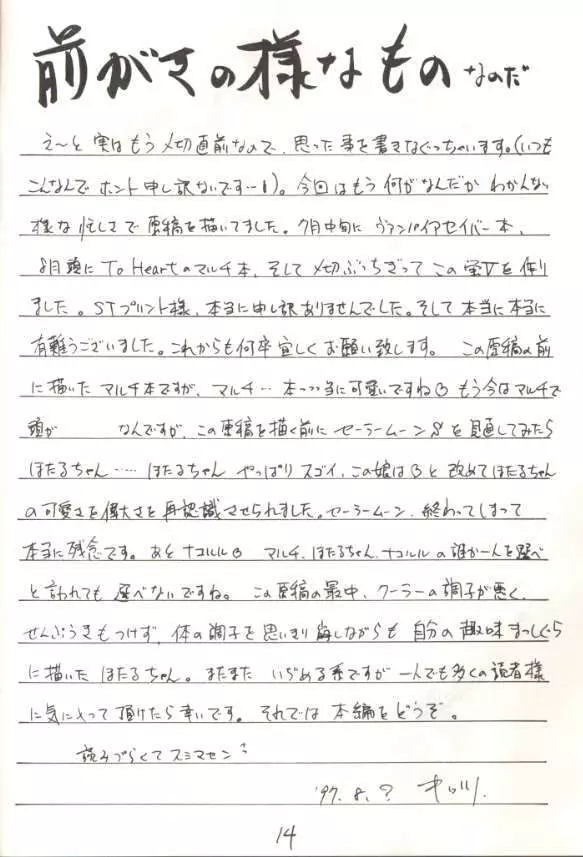 前がきの様なものなのだ
え〜と実はもう〆切直前なので、思った事を書きなぐっちゃいます。(いつも
こんなんでホント申し訳ないです…!)。今回はもう何がなんだかわかんない
様な忙しさで原稿を描いてました。7月中旬にヴァンパイアセイバー本、
8月頭にTo Heartのマルチ本、そして〆切ぶっちぎってこの蛍Vを作り
ました。STプリント様、本当に申し訳ありませんでした。そして本当に本当に
有難うございました。これからも何卒宜しくお願い致します。この原稿の前
に描いたマルチ本ですが、マルチ…本っっ当に可愛いですね もう今はマルチで
頭が なんですが、この原稿を描く前にセーラームーンSを見直してみたら
ほたるちゃん……ほたるちゃんやっぱりスゴイ、この娘は と改めてほたるちゃん
の可愛さを偉大さを再認識させられました。セーラームーン、終わってしまって
本当に残念です。あとナコルル マルチ、ほたるちゃん、ナコルルの誰か一人を選べ
と言われても選べないですね。この原稿の最中、クーラーの調子が悪く、
せんぷうきもつけず、体の調子を思いきり崩しながらも自分の趣味まっしぐら
に描いたほたるちゃん。またまたいぢめる系ですが一人でも多くの読者様
に気に入って頂けたら幸いです。それでは本編をどうぞ。
読みづらくてスミマセン
'97.8.?
14